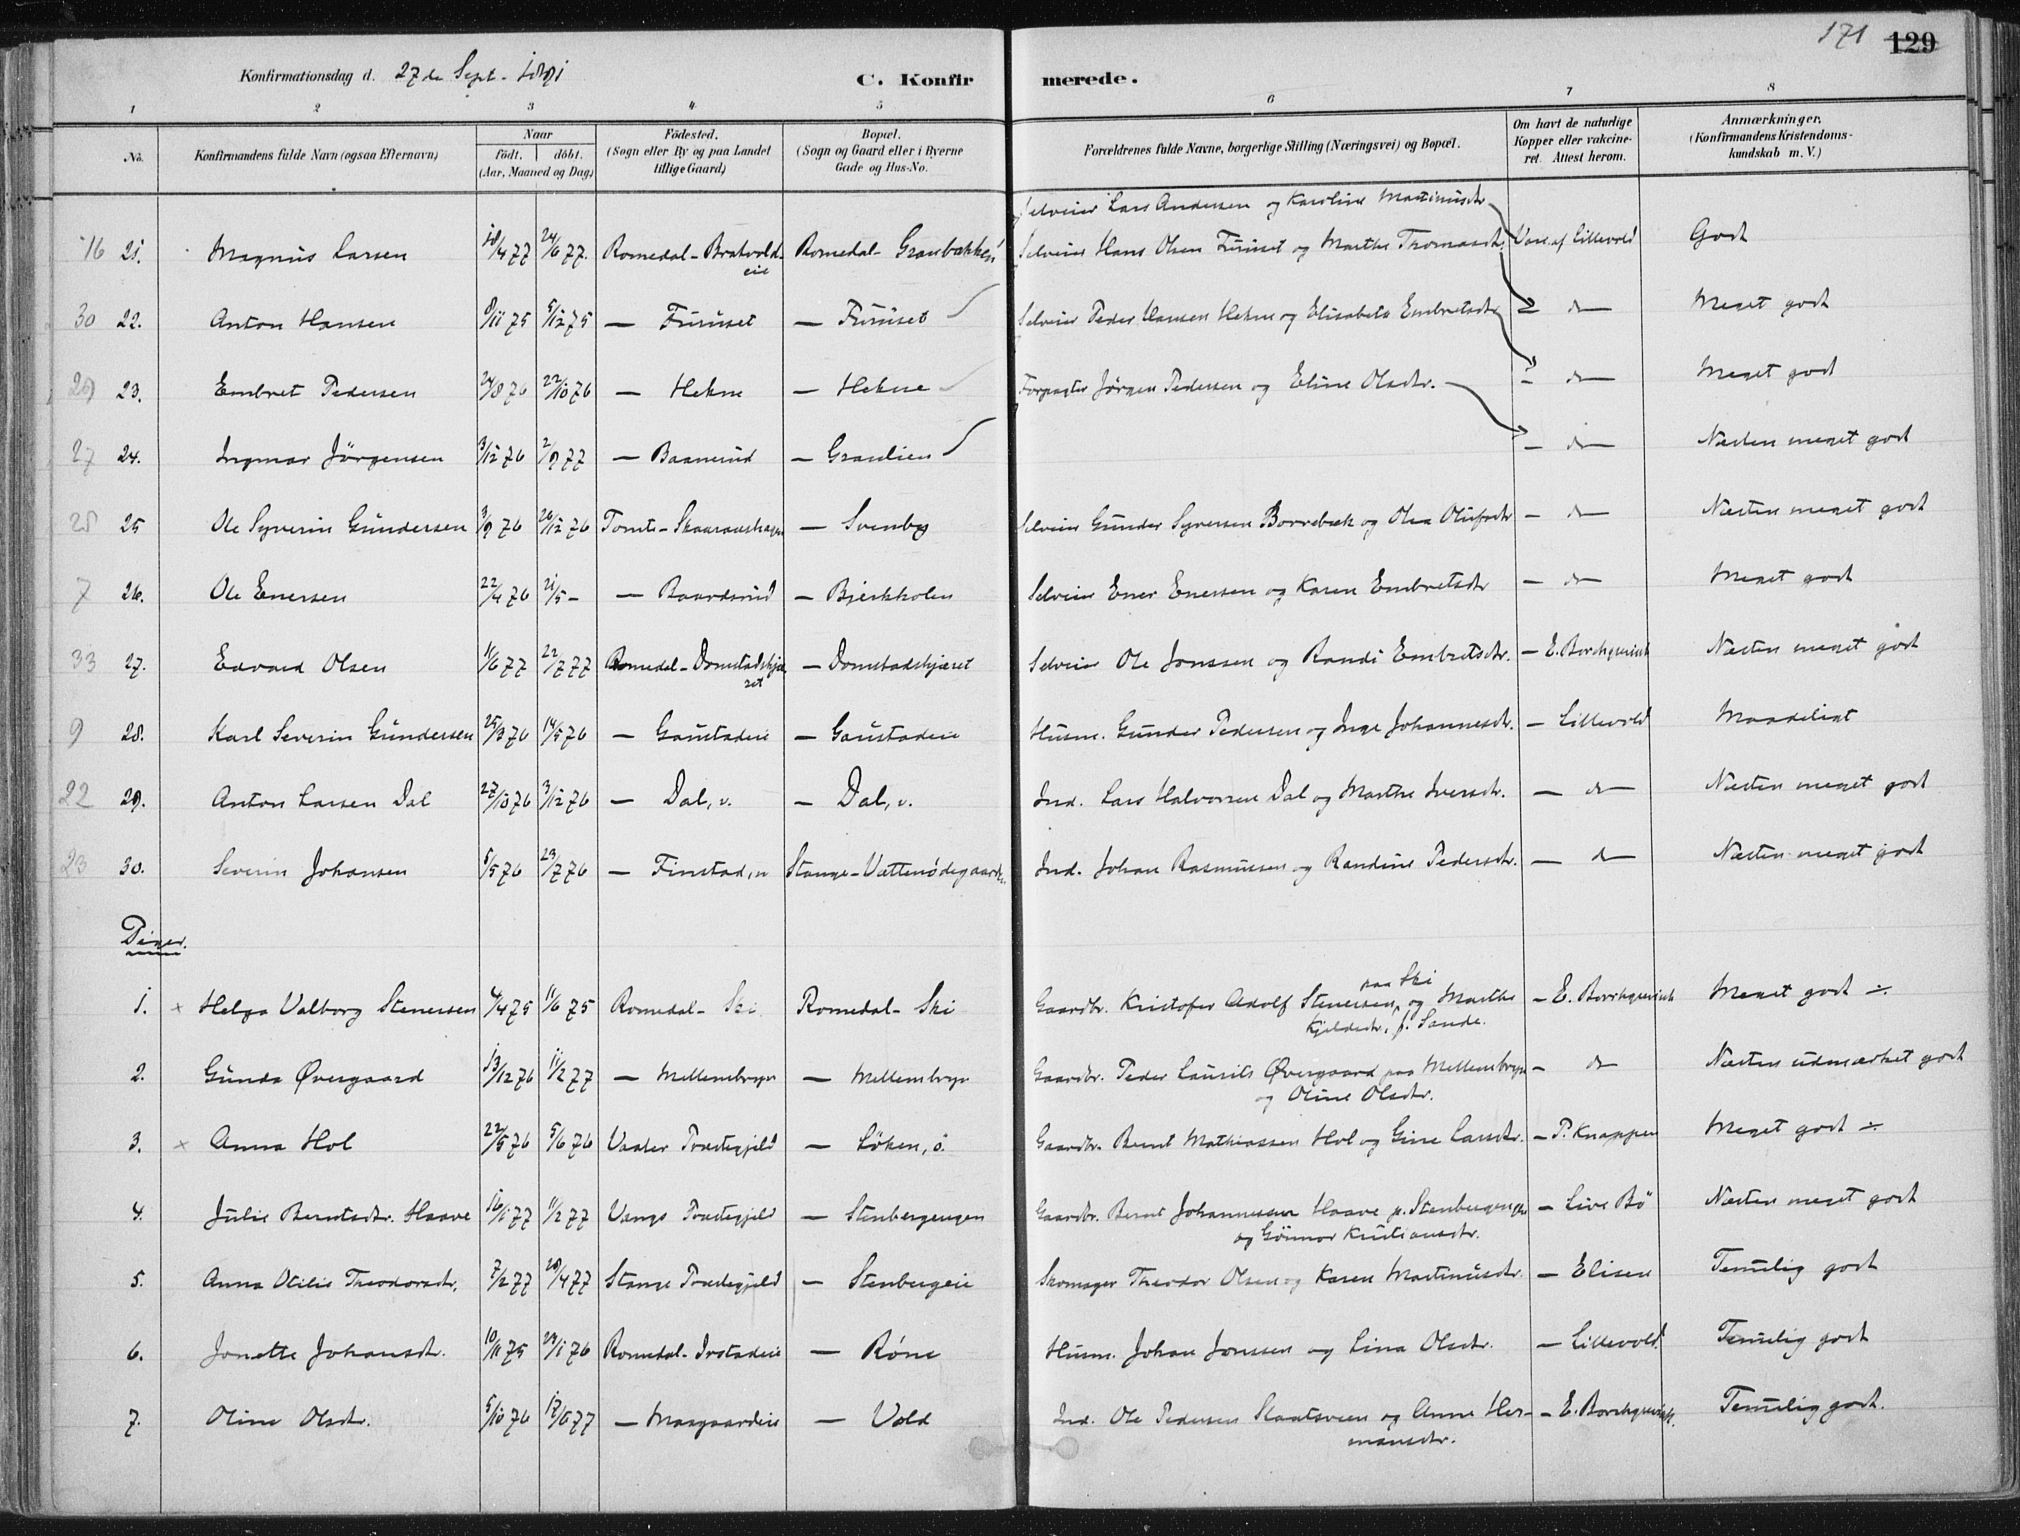 171 129
Konfirmationsdag d. 27de Sept. 1891
C. Konfirmerede.
1 2 3 4. 5 6 7 8
No.
Konfirmandens fulde Navn (ogsaa Efternavn)
Naar
födt. döbt.
(Aar, Maaned og Dag)
Födested.
(Sogn eller By og paa Landet
tillige Gaard)
Bopæl.
(Sogn og Gaard eller i Byerne
Gade og Hus-No.
Forældrenes fulde Navne, borgerlige Stilling (Næringsvei) og Bopæl.
Om havt de naturlige
Kopper eller vakcine-
ret. Attest herom.
Anmærkninger,
(Konfirmandens Kristendoms-
kundskab m. V.)
Selveier Lars Andersen og Karoline Martinusdtr
16 21. Magnus Larsen 18/4 77 24/6 77. Romedal - Bratvold- Romedal - Granbakken Selveier Hans Olsen Furuset og Marthe Thomasdtr. Vacc. af Lillevold Godt
eie
30 22. Anton Hansen 8/11 75 5/12 75 — Furuset — Furuset Selveier Peder Hansen Hekne og Elisabeth Embretsdtr — do — Meget godt
29 23. Embret Pedersen 24/8 76 22/10 76 — Hekne — Hekne Forpagter Jørgen Pedersen og Eline Olsdtr. — do — Meget godt
27 24. Ingmar Jörgensen 3/12 76 2/9 77 — Baanerud — Granlien — do — Næsten meget godt
28 25 Ole Syverin Gundersen 3/9 76 26/12 76 Tomte - Skaaraashagen — Svenby Selveier Gunder Syversen Borrebæk og Olea Olufsdtr — do — Næsten meget godt
7 26. Ole Enersen 22/4 76 21/5 - — Baardsrud — Bjerkholen Selveier Ener Enersen og Karen Embretsdtr — do — Meget godt
33 27. Edvard Olsen 1/6 77 22/7 77 Romedal - Domstadskjæ — Domstadskjæret Selveier Ole Jonssen og Randi Embretsdtr. — E. Borchgrevink Næsten meget godt
ret
9 28. Karl Severin Gundersen 25/3 76 14/5 76 — Gaustadeie — Gaustadeie Husm. Gunder Pedersen og Inge Johannesdtr. — Lillevold Maadeligt
22 29. Anton Larsen Dal 27/10 76 3/12 76 — Dal, v. — Dal, v. Ind. Lars Halvorsen Dal og Marthe Iversdtr. — do — Næsten meget godt
23 30. Severin Johansen 5/5 76 23/7 76 — Finstad, n Stange - Vættenødegaarden Ind. Johan Rasmussen og Randine Pedersdtr. — d — Næsten meget godt
Piger.
1. × Helga Valborg Stenersen 4/4 75 11/6 75 Romedal - Ski Romedal - Ski Gaardbr. Kristofer Adolf Stenersen, paa Ski og Marthe — E. Borchgrevink Meget godt ÷
Kjeldsdtr, f. Sande.
2. Gunda Øvergaard 13/12 76 11/2 77 — Mellembryn — Mellembryn Gaardbr. Peder Laurits Øvergaard paa Mellembryn — do Næsten udmærket godt
og Oline Olsdtr.
3. × Anna Hol 22/5 76 5/6 76 Vaaler Præstegjeld — Løken, ö. Gaardbr. Bernt Mathiassen Hol og Gine Larsdtr. — P. Knappen Meget godt ÷
4. Julie Berntsdtr. Haave 16/1 77 11/2 77 Vangs Præstegjeld — Stenbergengen Gaardbr. Bernt Johannessen Haave p. Stenbergengen — Live Bö Næsten meget godt
og Gunnor Kristiansdtr.
5. Anna Otilie Theodorsdtr. 7/2 77 28/4 77 Stange Præstegjeld — Stenbergeie Skomager Theodor Olsen og Karen Martinusdtr. — Elisen Temmelig godt
6. Jonette Johansdtr. 10/11 75 23/1 76 Romedal - Ivstadeie — Röne Husm. Johan Jonssen og Lina Olsdtr. — Lillevold. Temmelig godt
7. Oline Olsdtr. 5/10 76 17/6 77 — Maagaardeie — Vold Ind. Ole Pedersen Slaatsveen og Anne Her- — E. Borchgrevink. Temmelig godt.
mansdtr.